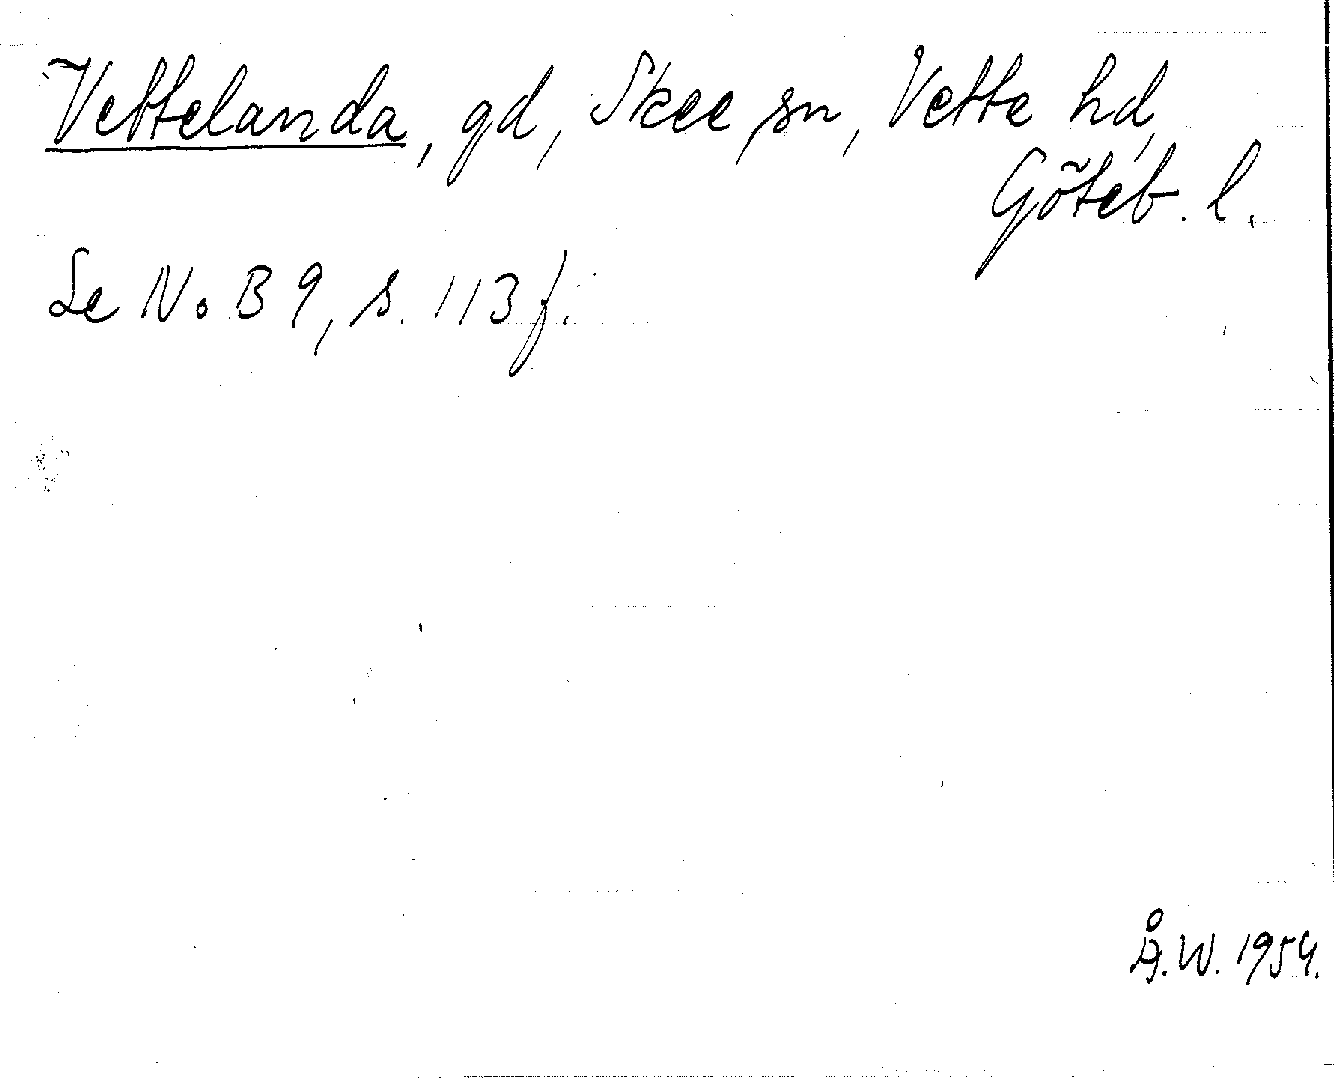 Vettelanda, gd, Skee sn, Vette hd,
Göteb. l.
Se NoB 9, s. 113 f.
Å.W. 1954.